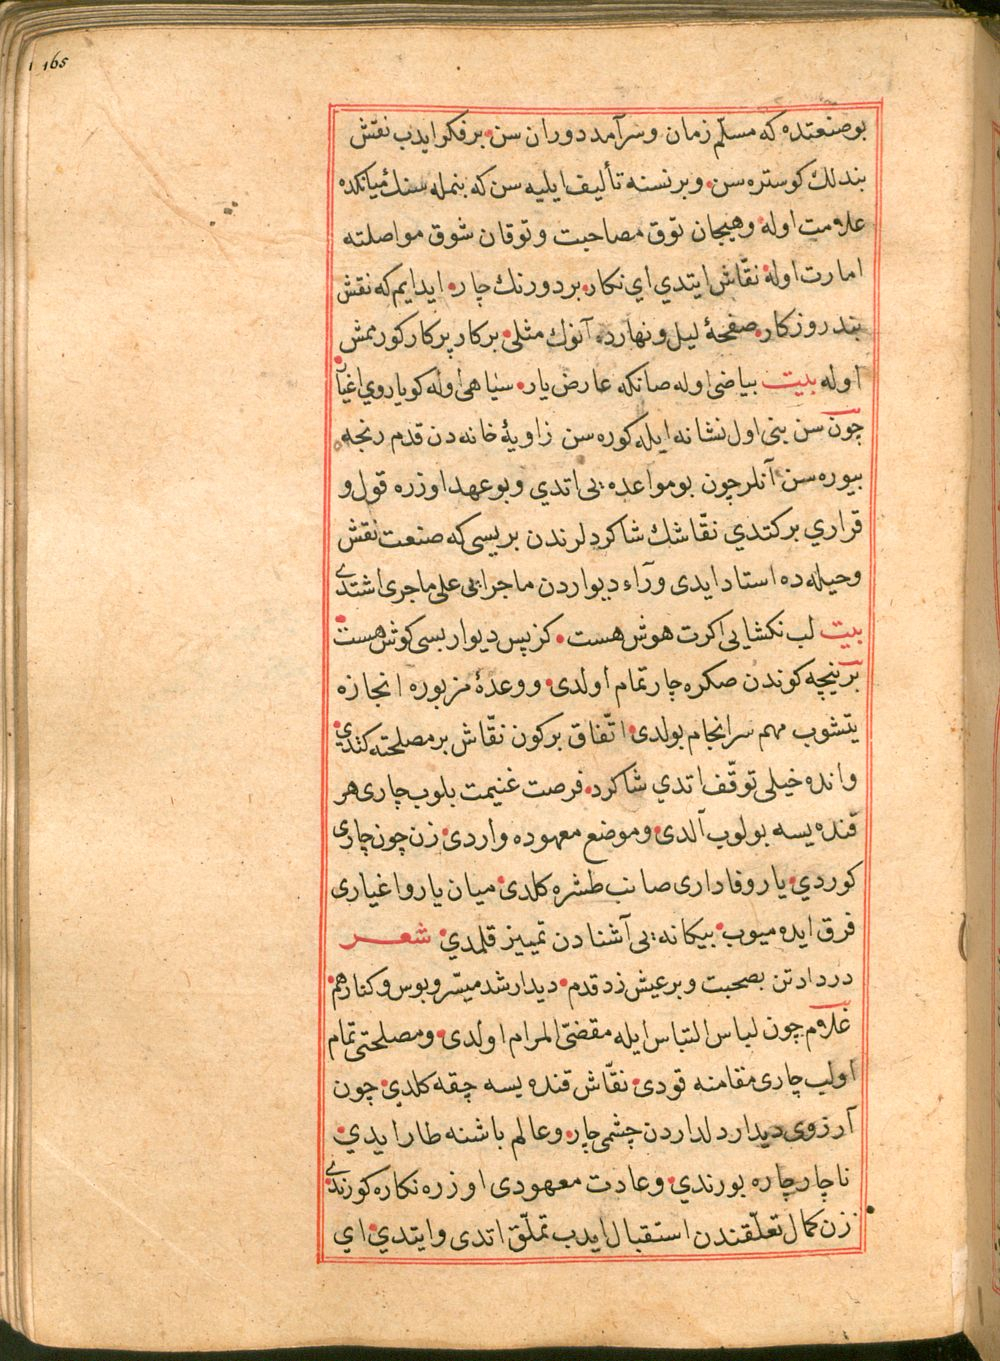 165
بو صنعتده كه مسلّم زمان و سرآمد دوران سن برفكر ايدب نقش
بندلك كوستره سن و بر نسنه تأليف ايليه سن كه بنمله سنك ميانكده
علامت اوله و هيجان توق مصاحبت و توقان شوق مواصلته
امارت اوله نقّاش ايتدي اي نكار بر دورنك چار ايدايم كه نقش
بند روزكار صفحهٔ ليل و نهارده آنوك مثلی بركار پركار كورممش
اوله بيت بياضی اوله صانكه عارض يار سياهی اوله كويا روي اغيار
چون سن بنی اول نشانه ايله كوره سن زاويهٔ خانه دن قدم رنجه
بيوره سن آنلر چون بو مواعده يی اتدي و بو عهد اوزره قول و
قراري بركتدي نقّاشك شاكردلرندن بريسی كه صنعت نقش
و حيله ده استاد ايدی ورآء ديواردن ماجرايی علی ماجری اشتدی
بيت لب نكشايی اكرت هوش هست كز پس ديوار بسی كوش هست
بر نيچه كوندن صكره چار تمام اولدی و وعدهٔ مزبوره انجازه
يتشوب مهم سرانجام بولدی اتّفاق بركون نقّاش بر مصلحته كتدي
و انده خيلی توقّف اتدي شاكرد فرصت غنيمت بلوب چاری هر
قنده يسه بولوب آلدی و موضع معهوده واردی زن چون چاری
كوردي يار وفاداری صانب طشره كلدی ميان يار و اغياری
فرق ايده ميوب بيكانه يی آشنادن تمييز قلمدي شعر
درداد تن بصحبت و بر عيش زد قدم ديدار شد ميسّر و بوس و كنار هم
غلام چون لباس التباس ايله مقضتی المرام اولدی و مصلحتی تمام
اولب چاری مقامنه قودی نقّاش قنده يسه چقه كلدي چون
آرزوی ديدار دلداردن چشمی چار و عالم باشنه طار ايدي
ناچار چاره بورندي و عادت معهودی اوزره نكاره كورندی
زن كمال تعلّقندن استقبال ايدب تملّق اتدی و ايتدي اي